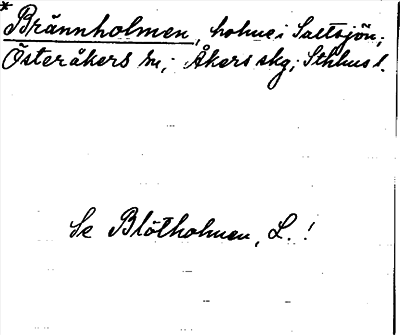 * Brännholmen, holme i Saltsjön;
Österåkers sn; Åkers skg; Sthlms l.
Se Blötholmen, L. !